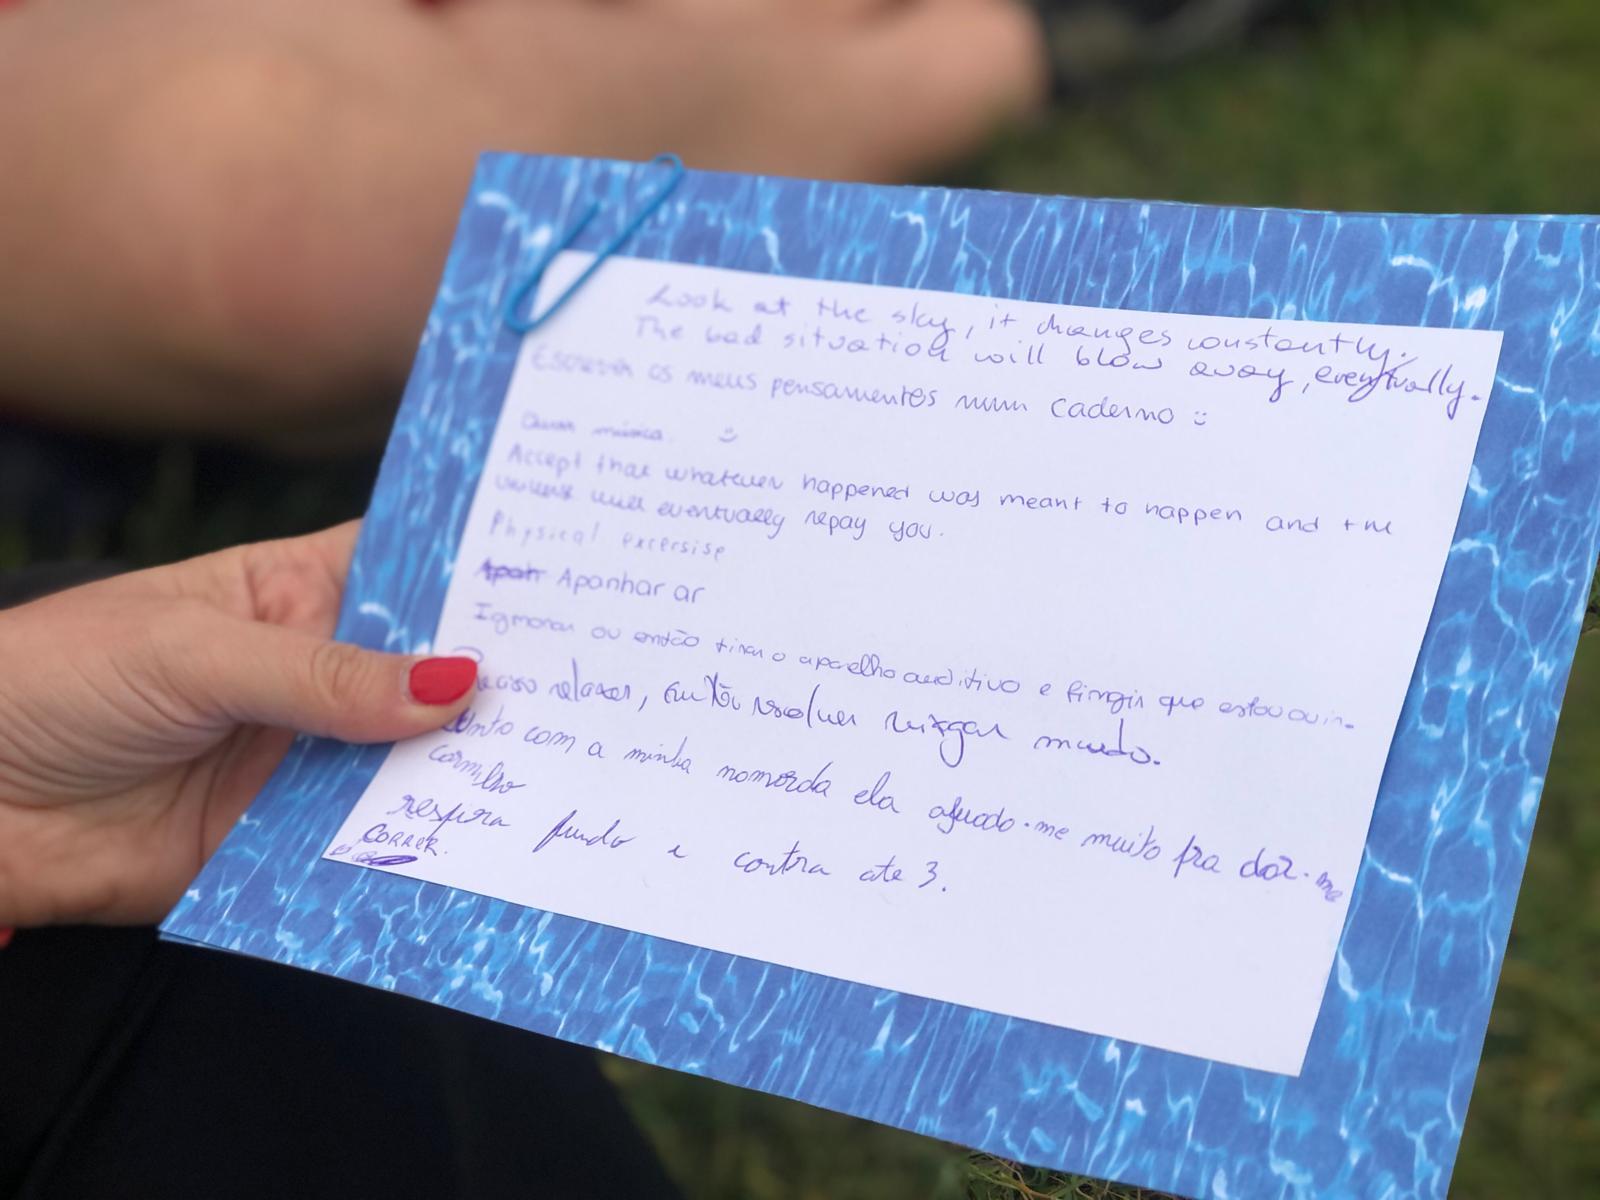 Look at the sky, it changes constantly.
The bad situation will blow away, eventually.
Escrever os meus pensamentos num caderno :)
Ouvir música. :)
Accept that whatever happened was meant to happen and the
universe will eventually repay you.
Physical excersise
Apah Apanhar ar
Ignorar ou então tirar o aparelho auditivo e fingir que estou ouvin-
Preciso relaxar, então resolver xingar mundo.
Conto com a minha namorda ela ajuado-me muito pra dar-me
carinho
respira fundo e contra ate 3.
CORRER.